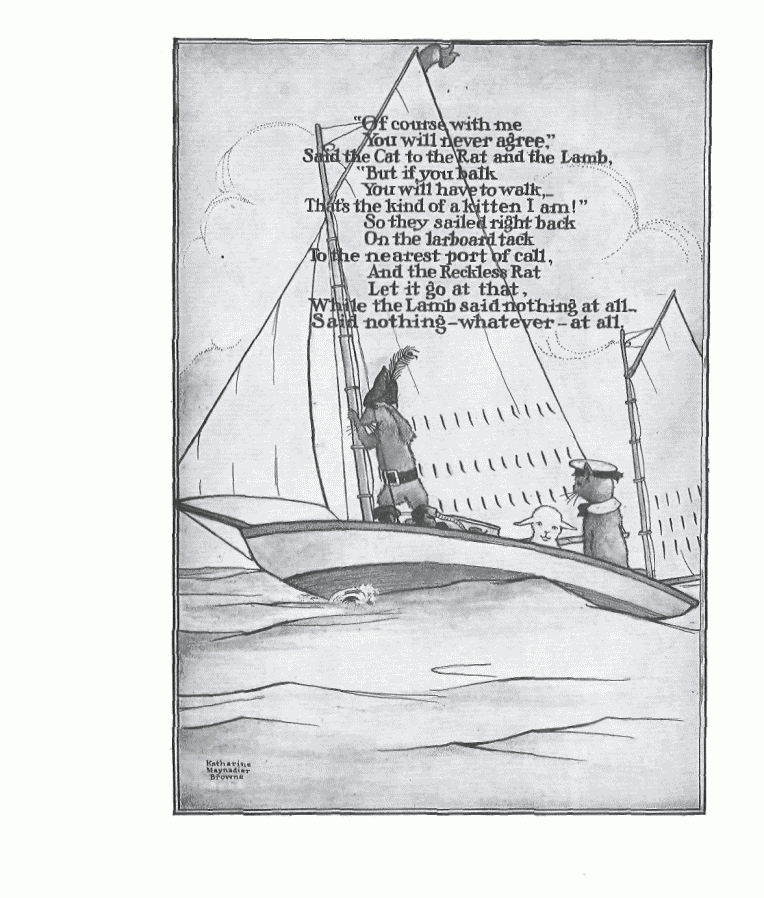 "Of course with me
You will never agree,"
Said the Cat to the Rat and the Lamb,
"But if you balk
You will have to walk,—
That's the kind of a kitten I am!"
So they sailed right back
On the larboard tack
To the nearest port of call,
And the Reckless Rat
Let it go at that,
While the Lamb said nothing at all—
Said nothing—whatever—at all.
Katharine
Maynadier
Browne